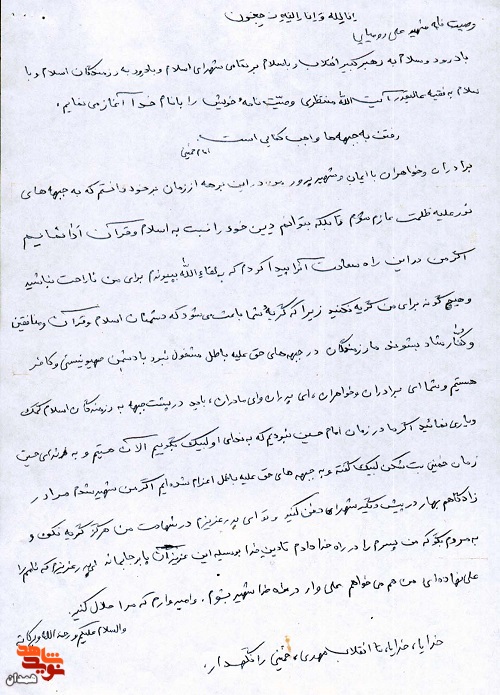 انا لله و انا الیه راجعون
وصیت نامه شهید علی رومیانی
با درود و سلام به رهبر کبیر انقلاب و با سلام بر تمامی شهدای اسلام و با درود به رزمندگان اسلام و با
سلام به فقیه عالیقدر آیت الله منتظری وصیت نامه خویش را با نام خدا آغاز می نمایم.
رفتن به جبهه ها واجب کفایی است.
امام خمینی
برادران و خواهران با ایمان و شهید پرور من در این برهه از زمان بر خود دانستم که به جبهه های
نور علیه ظلمت عازم شوم تا بلکه بتوانم دین خود را نسبت به اسلام و قرآن ادا نمایم
اگر من در این راه سعادت آنرا پیدا کردم که به لقاء الله بپیوندم برای من ناراحت نباشید
و هیچ گونه برای من گریه نکنید زیرا که گریه شما باعث می شود که دشمنان اسلام و قرآن و منافقین
و کفار شاد بشوند ما رزمندگان در جبهه های حق علیه باطل مشغول نبرد با دشمن صهیونیستی و کافر
هستیم و شما ای برادران و خواهران، ای پدران و ای مادران، باید در پشت جبهه به رزمندگان اسلام کمک
و یاری نمائید اگر ما در زمان امام حسین نبودیم که به ندای او لبیک بگوییم الان هستیم و به حسین
زمان خمینی بت شکن لبیک گفته و به جبهه های حق علیه باطل اعزام شده ایم اگر من شهید شدم مرا در
زادگاهم بهار در پیش دیگر شهدای دفن کنید و تو ای پدر عزیزم در شهادت من هرگز گریه نکن و
به مردم بگو که من پسرم را در راه خدا دادم تا دین خدا بوسیله این عزیزان پا بر جا بماند ای پدر عزیزم که نامم را
علی نهاده ای من هم می خواهم علی وار در راه خدا شهید بشوم. و امیدوارم که مرا حلال کنید.
والسلام علیکم و رحمة الله و برکاته
خدایا، خدایا، تا انقلاب مهدی، خمینی را نگهدار.
نوید شاهد
همدان